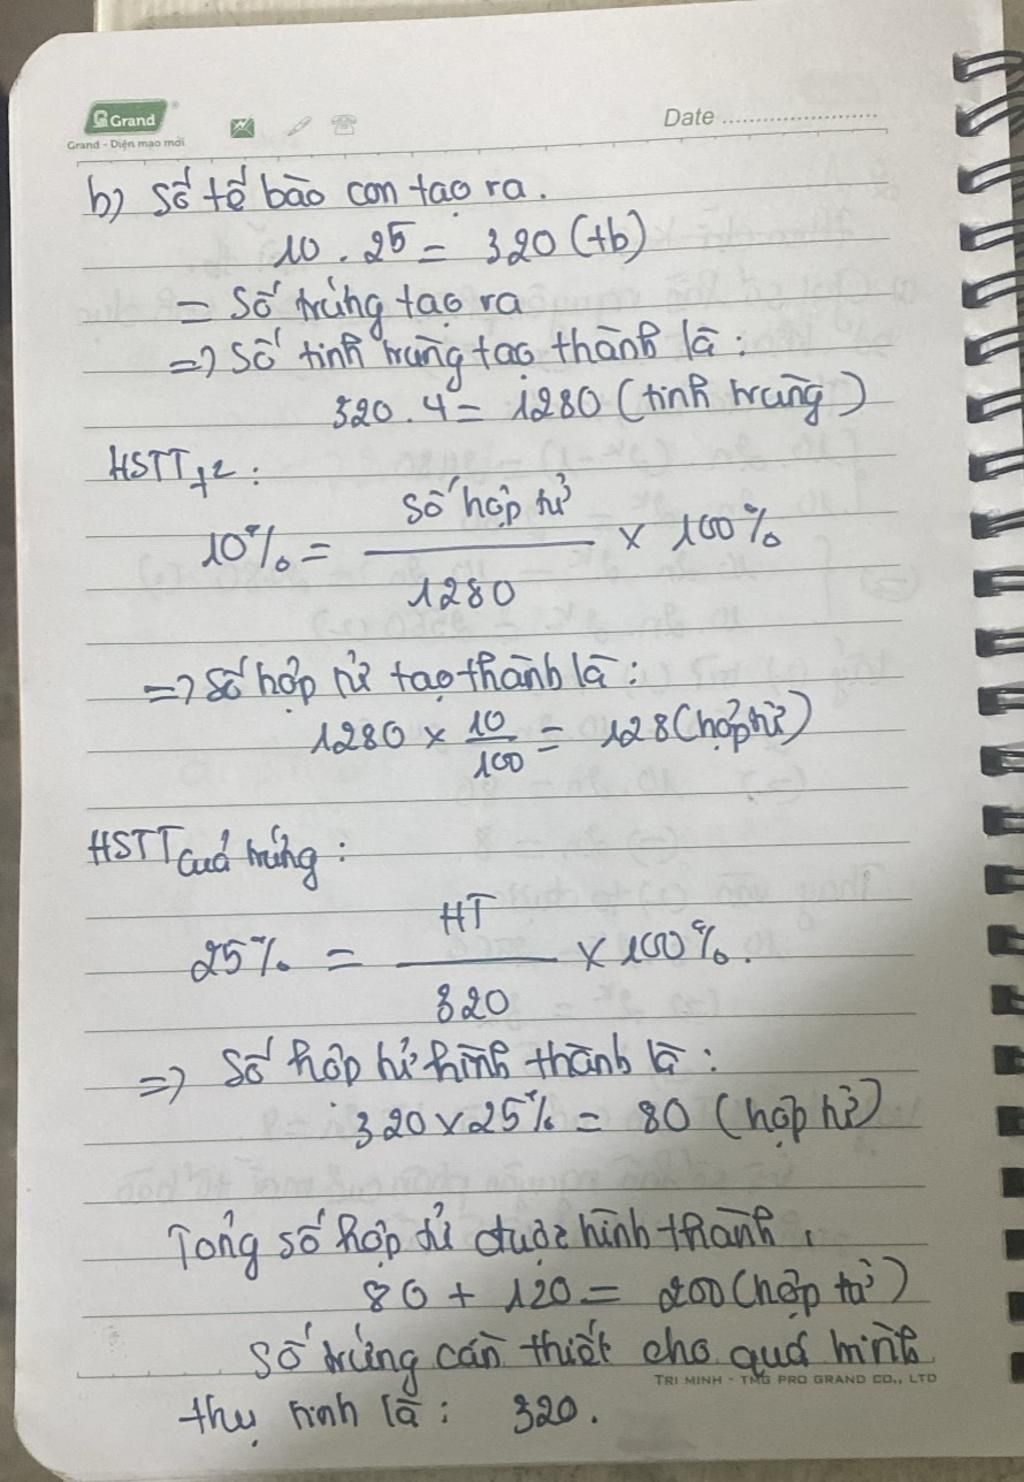 Grand
Grand - Diện mạo mới
Date
b) Số tế bào con tạo ra.
10 . 2⁵ = 320 (tb)
= Số trứng tạo ra
=> Số tinh trùng tạo thành là :
320 . 4 = 1280 (tinh trùng)
HSTT t² :
10% = Số hợp tử / 1280 x 100%
=> Số hợp tử tạo thành là :
1280 x 10/100 = 128 (hợp tử)
HSTT của trứng :
25% = HT / 320 x 100%.
=> Số hợp tử hình thành là :
320 x 25% = 80 (hợp tử)
Tổng số hợp tử được hình thành
80 + 120 = 200 (hợp tử)
Số trứng cần thiết cho quá trình
TRI MINH - TMG PRO GRAND CO., LTD
thụ tinh là : 320.